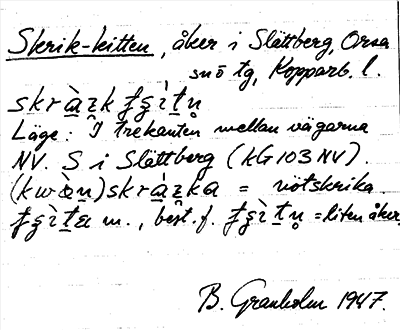 Skrik-kitten, åker i Slättberg, Orsa
snö tg, Kopparb. l.
skràzk
Läge: I trekanten mellan vägarna
NV. S i Slättberg (kG 103 NV).
(kwàn)skràzka = nötskrika.
m., best. f. = liten åker.
B. Granholm 1947.